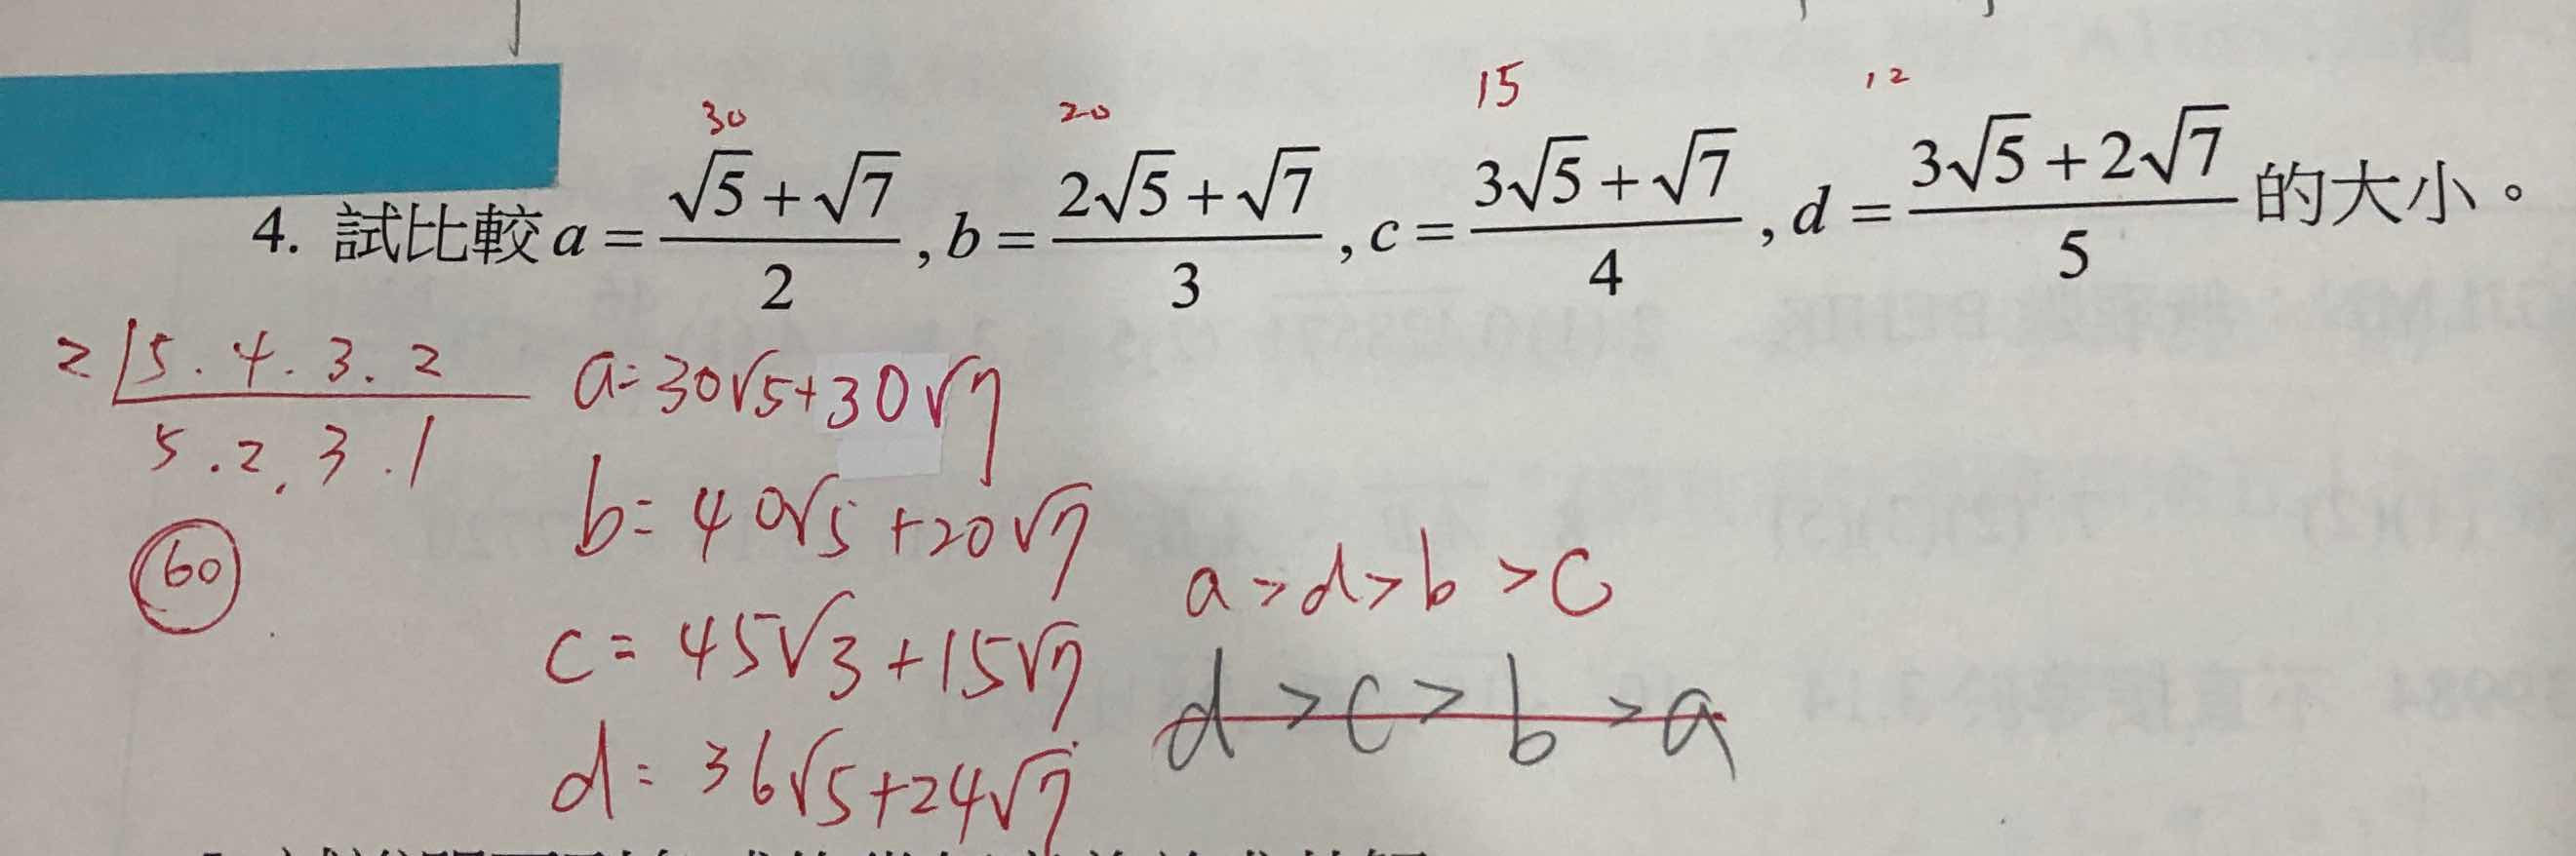 30 20 15 12
4. 試比較 a = (√5 + √7)/2 , b = (2√5 + √7)/3 , c = (3√5 + √7)/4 , d = (3√5 + 2√7)/5 的大小。
2 | 5 . 4 . 3 . 2
5 . 2 . 3 . 1
60
a = 30√5 + 30√7
b = 40√5 + 20√7
c = 45√3 + 15√7
d = 36√5 + 24√7
a > d > b > c
d > c > b > a